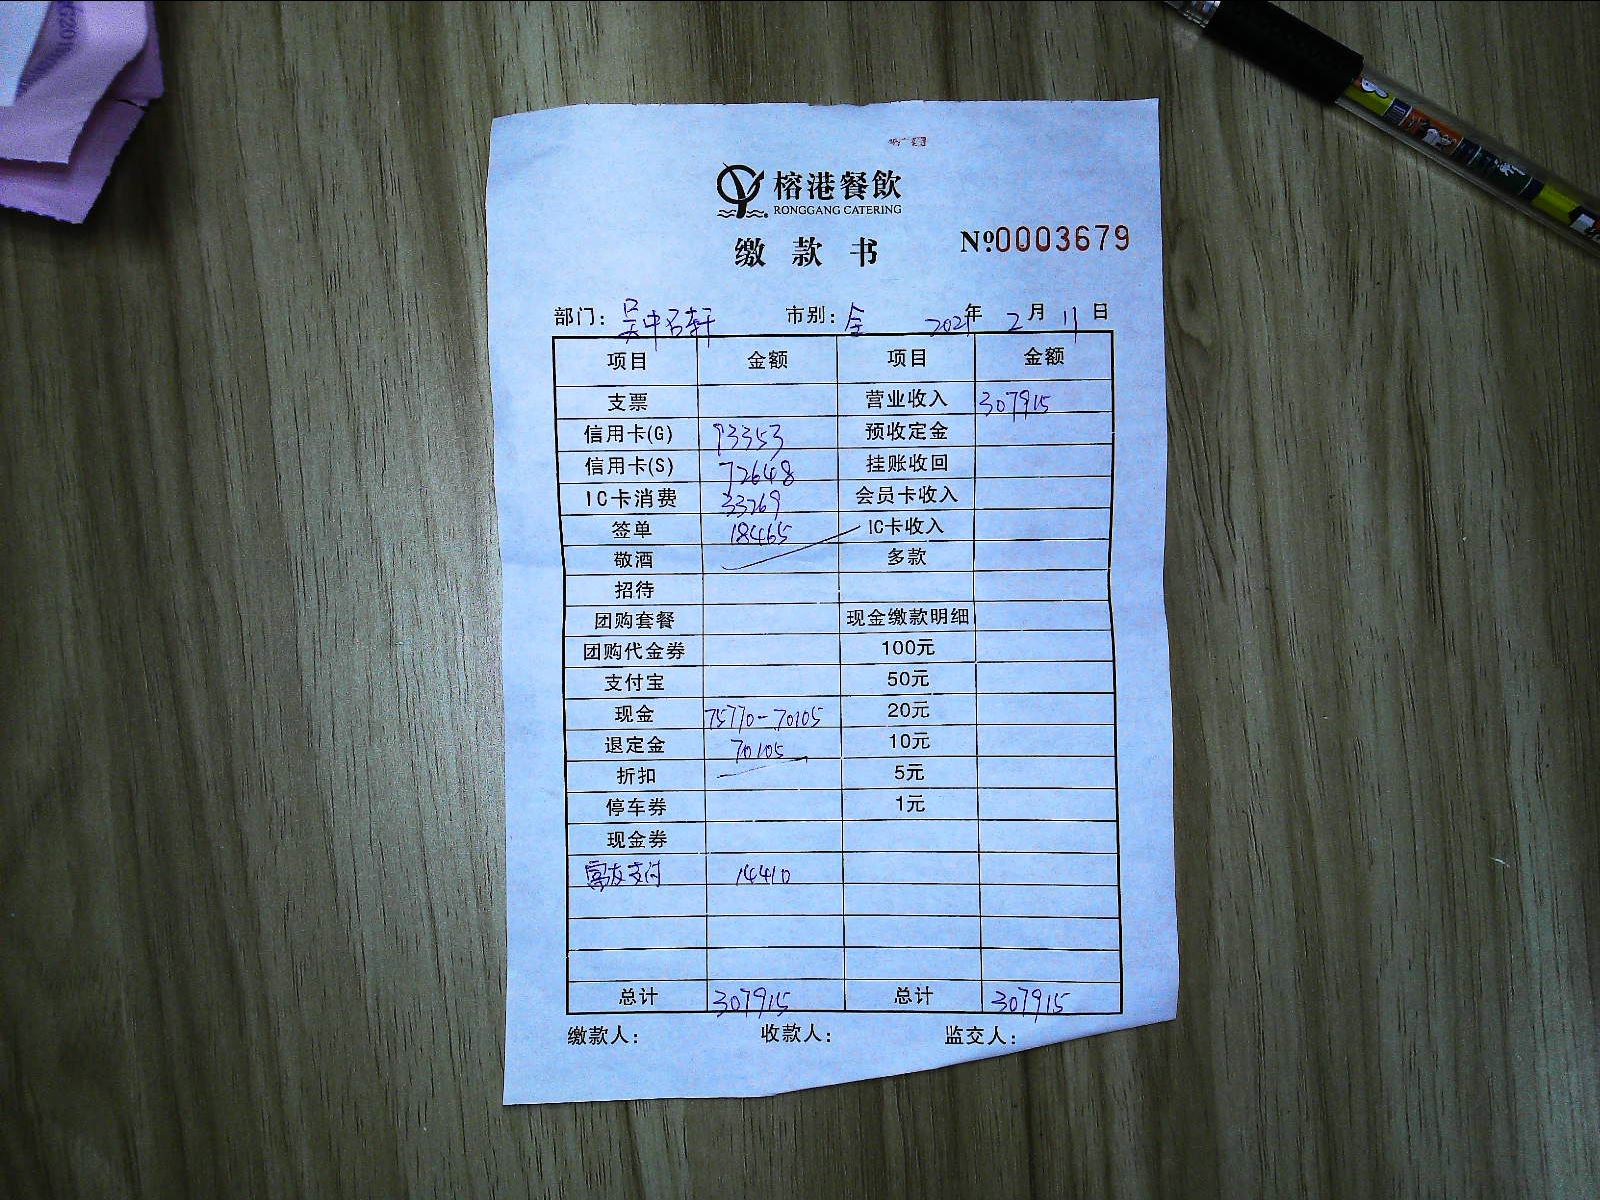 榕港餐飲
RONGGANG CATERING
缴款书 №0003679
部门: 吴中名轩 市别: 全 2021年 2月 11日
项目 金额 项目 金额
支票 营业收入 307915
信用卡(G) 93353 预收定金
信用卡(S) 72648 挂账收回
IC卡消费 33269 会员卡收入
签单 18465 IC卡收入
敬酒 多款
招待
团购套餐 现金缴款明细
团购代金券 100元
支付宝 50元
现金 75770-70105 20元
退定金 70105 10元
折扣 5元
停车券 1元
现金券
富友支付 14410
总计 307915 总计 307915
缴款人: 收款人: 监交人: